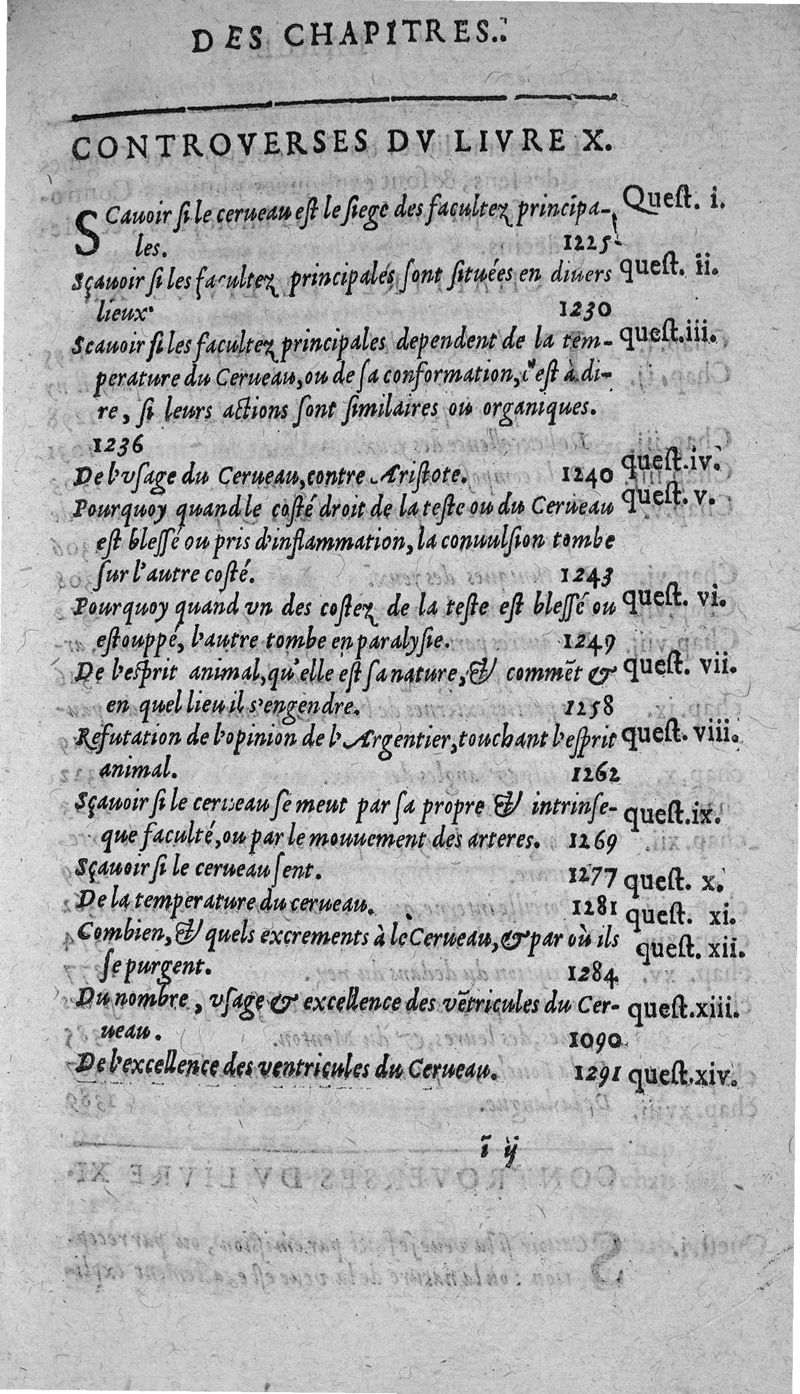 DES CHAPITRES.
CONTROVERSES DV LIVRE X.
SCauoir si le cerueau est le siege des facultez principa- Quest. i.
les. 1225
Sçauoir si les facultez principales sont situées en diuers quest. ii.
lieux 1230
Scauoir si les facultez principales dependent de la tem- quest.iii.
perature du Cerueau, ou de sa conformation, c'est à di-
re, si leurs actions sont similaires ou organiques.
1236
De l'vsage du Cerueau, contre Aristote. 1240 quest.iv.
Pourquoy quand le costé droit de la teste ou du Cerueau quest. v.
est blessé ou pris d'inflammation, la conuulsion tombe
sur l'autre costé. 1243
Pourquoy quand vn des costez de la teste est blessé ou quest. vi.
estouppé, l'autre tombe en paralysie. 1249
De l'esprit animal, qu'elle est sa nature, & commẽt & quest. vii.
en quel lieu il s'engendre. 1258
Refutation de l'opinion de l'Argentier, touchant l'esprit quest. viii.
animal. 1262
Sçauoir si le cerueau se meut par sa propre & intrinse- quest.ix.
que faculté, ou par le mouuement des arteres. 1269
Sçauoir si le cerueau sent. 1277 quest. x.
De la temperature du cerueau. 1281 quest. xi.
Combien, & quels excrements à le Cerueau, & par où ils quest. xii.
se purgent. 1284
Du nombre, vsage & excellence des vẽtricules du Cer- quest.xiii.
ueau. 1090
De l'excellence des ventricules du Cerueau. 1291 quest.xiv.
ĩ ij